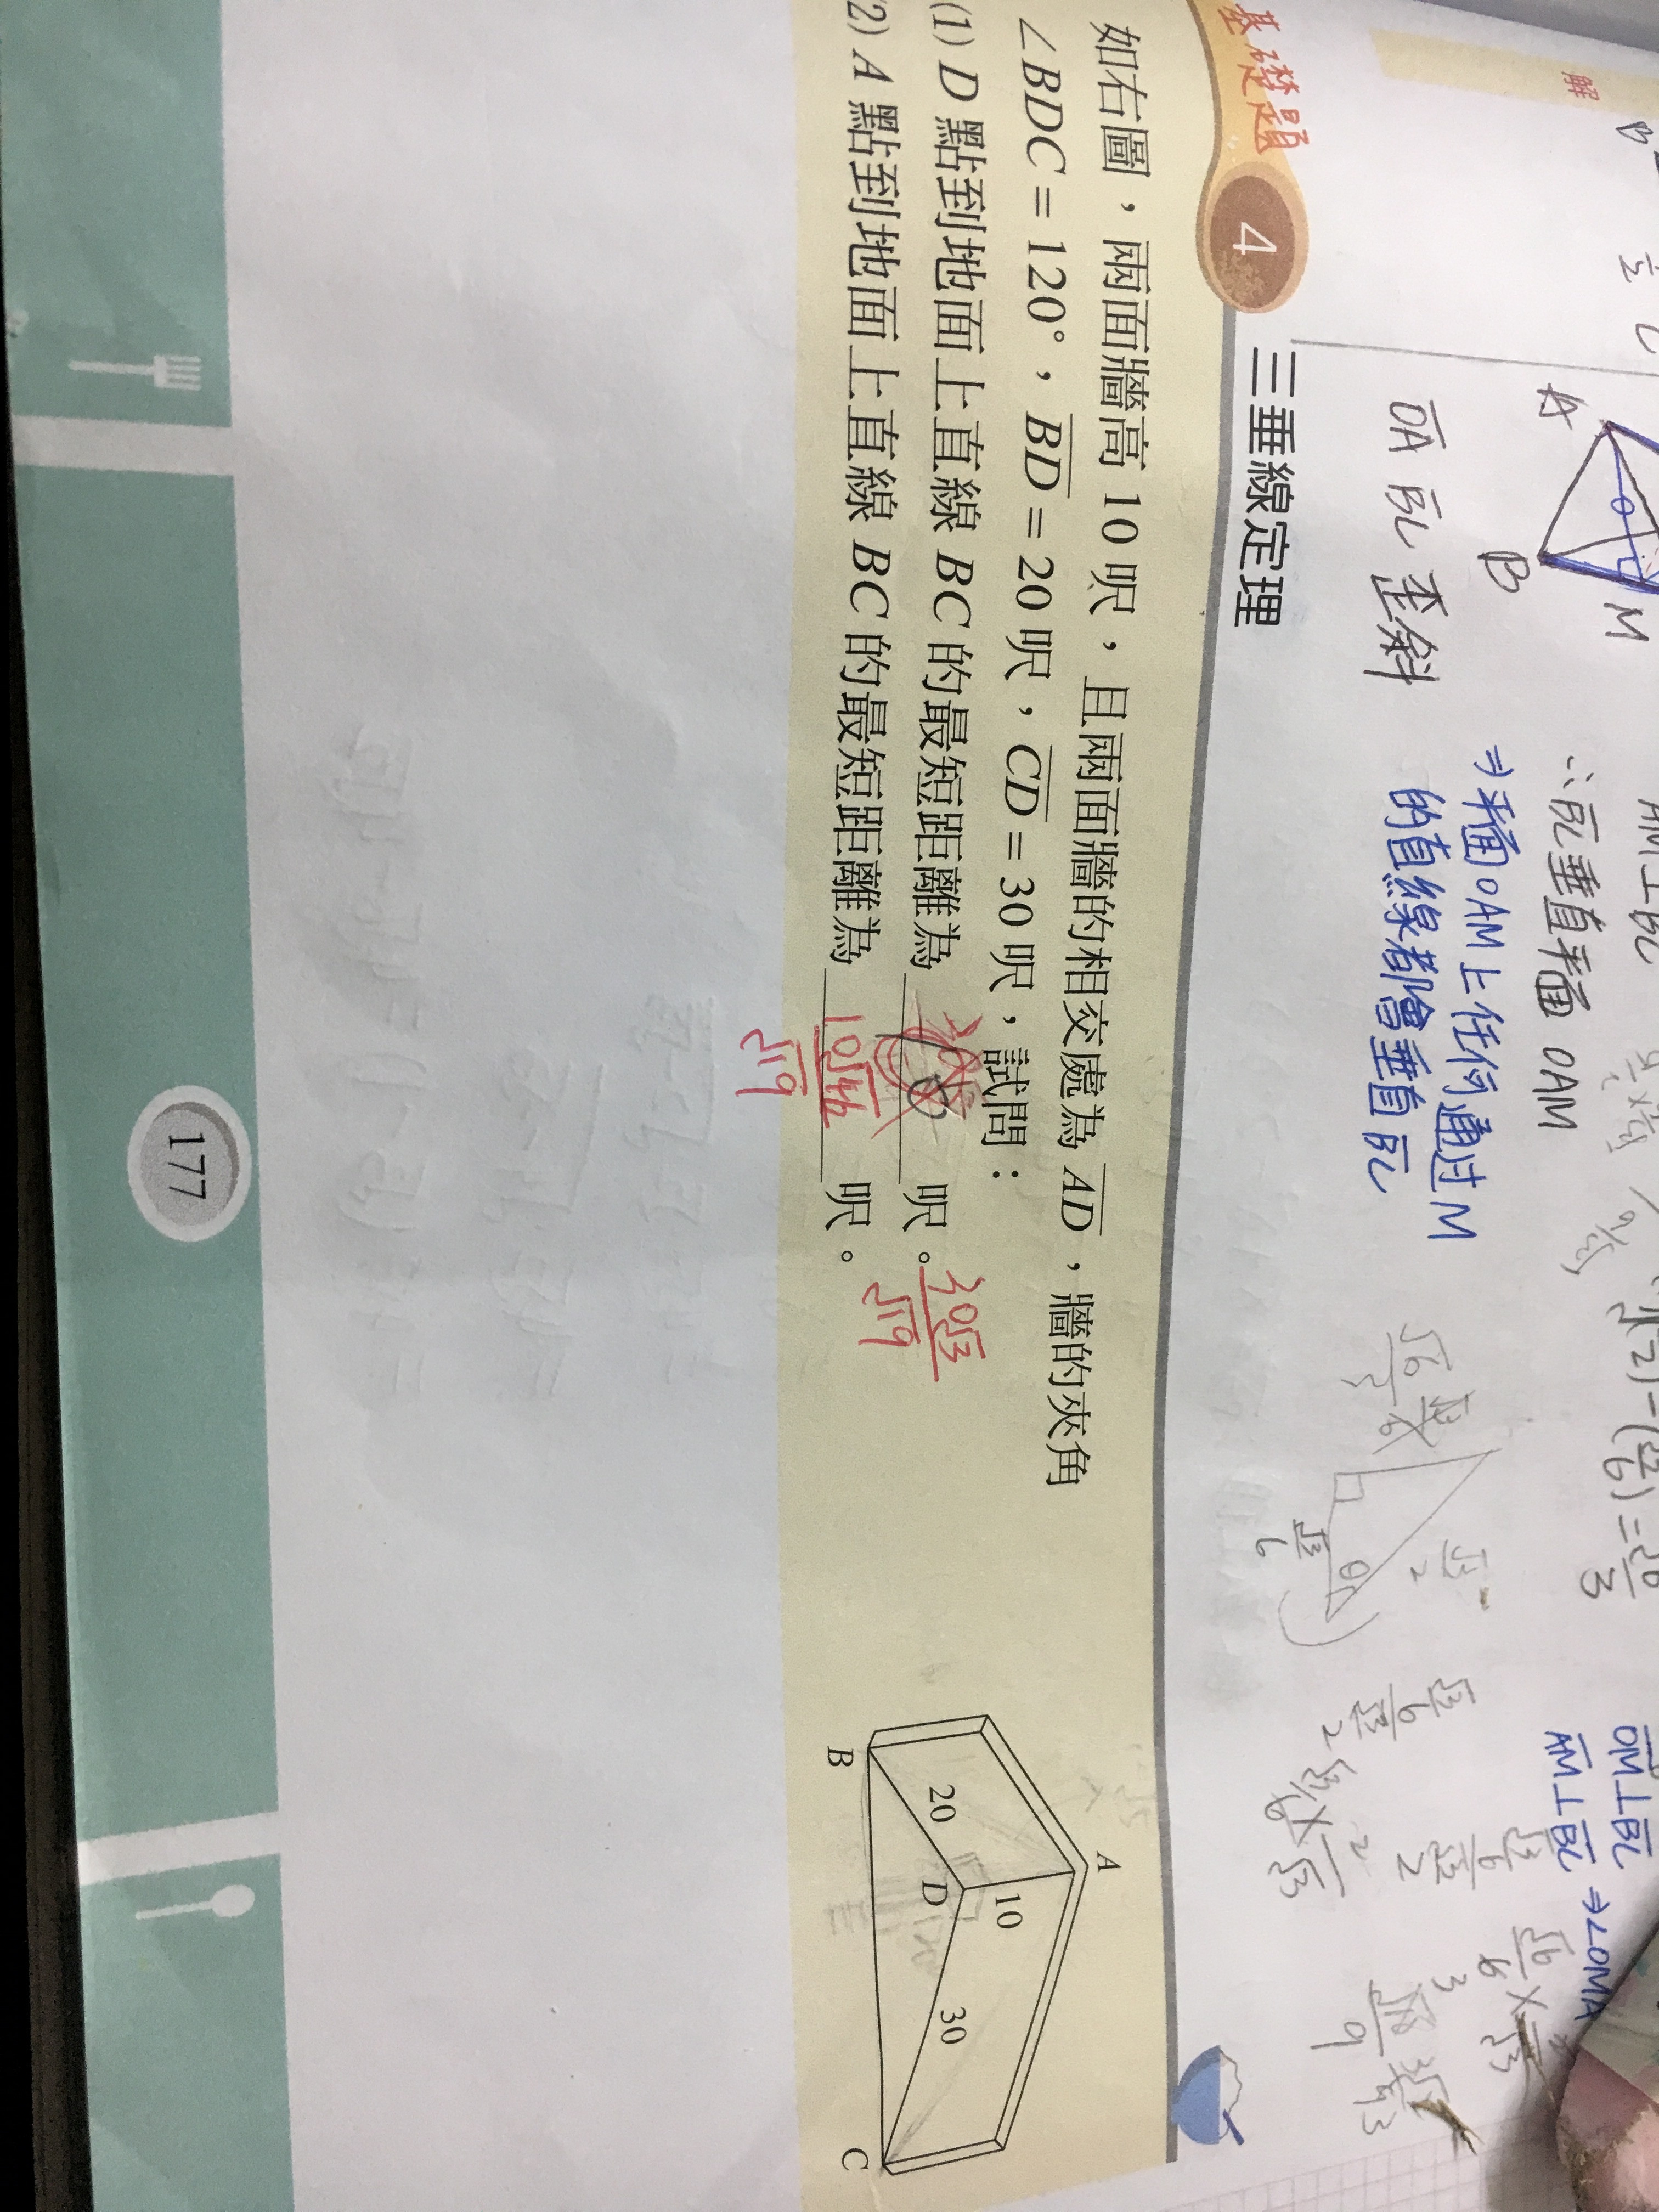 解
A
B
M
O
OA BC 歪斜
AM⊥BC
∴BC垂直平面 OAM
⇒平面OAM上任何通過M
的直線都會垂直BC
OM⊥BC
AM⊥BC ⇒∠OMA
θ
基礎題 4 三垂線定理
如右圖，兩面牆高 10 呎，且兩面牆的相交處為 AD，牆的夾角
∠BDC = 120°，BD = 20 呎，CD = 30 呎，試問：
(1) D 點到地面上直線 BC 的最短距離為 呎。 30√3/√19
(2) A 點到地面上直線 BC 的最短距離為 10√46/√19 呎。
A
10
20
D
30
B
C
177